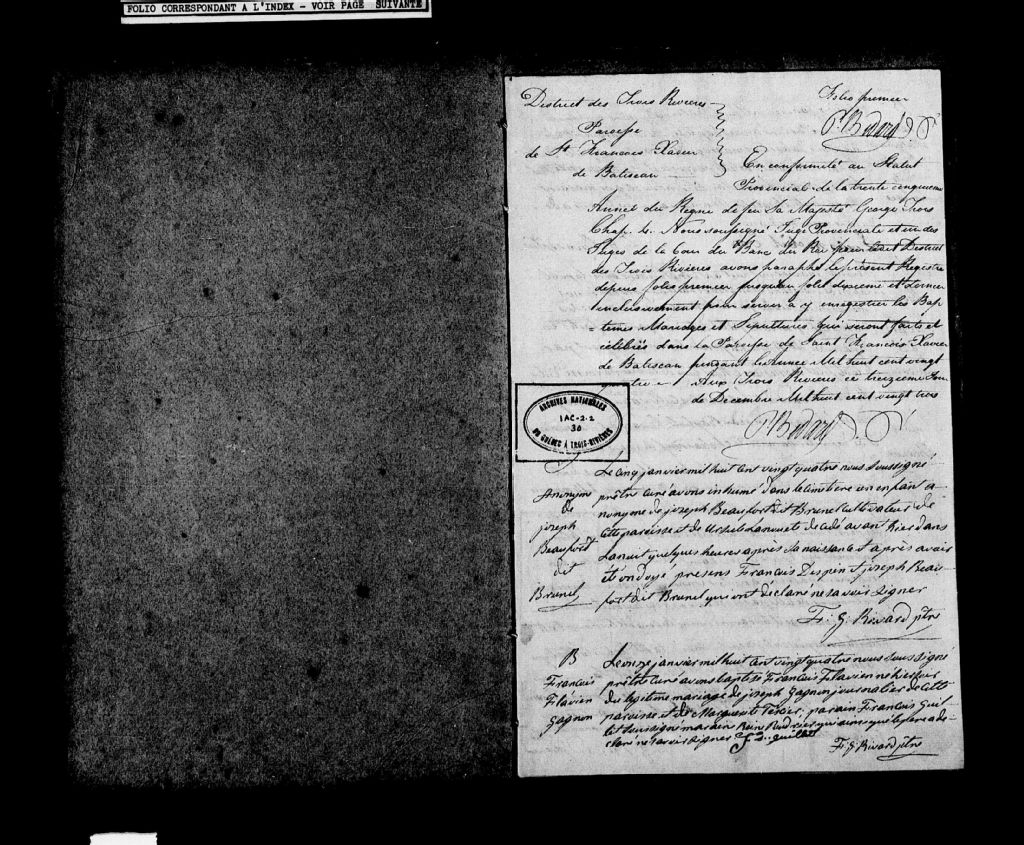 FOLIO CORRESPONDANT A L'INDEX - VOIR PAGE SUIVANTE
Folio premier
P. Bedard
District des Trois Rivieres
Paroisse
de St Francois Xavier
de Batiscan
En conformité au Statut
Provincial de la trente cinquieme
Année du Regne de feu Sa Majesté George Trois
Chap. 4. Nous soussigné Juge Provinciale et un des
Juges de la Cour du Banc du Roi pour District
des Trois Rivieres avons paraphé le présent Registre
depuis folio premier jusqu'au folio et dernier
inclusivement pour servir a y enregistrer les Bap
=temes Mariages et Sepultures qui seront faits et
célébrés dans la Paroisse de Saint François Xavier
de Batiscan pendant l'Année Mil huit cent vingt
quatre Aux Trois Rivieres ce treizieme Jour
de Decembre Mil huit cent vingt trois
P. Bedard
ARCHIVES NATIONALES
1AC-2.2
30
DU QUÉBEC À TROIS-RIVIÈRES
Anonyme
de
joseph
Beaufort
dit
Brunel
Le cinq janvier mil huit cent vingt quatre nous soussigné
prêtre curé avons inhumé dans le cimetière un enfant a-
nonyme de joseph Beaufort dit Brunel cultivateur de
cette paroisse et de décédé avant hier dans
la nuit quelques heures après sa naissance et après avoir
été ondoyé présens François et joseph Beau
fort dit Brunel qui ont déclaré ne savoir signer
F. G. Rivard ptre
B
François
Flavien
Gagnon
Le onze janvier mil huit cent vingt quatre nous soussigné
prêtre curé avons baptisé François Flavien né hier
du légitime mariage de joseph Gagnon journalier de cette
paroisse et de Marguerite parain François Guil
let soussigné maraine qui ainsi que le père a dé-
claré ne savoir signer guillet
F. G. Rivard ptre